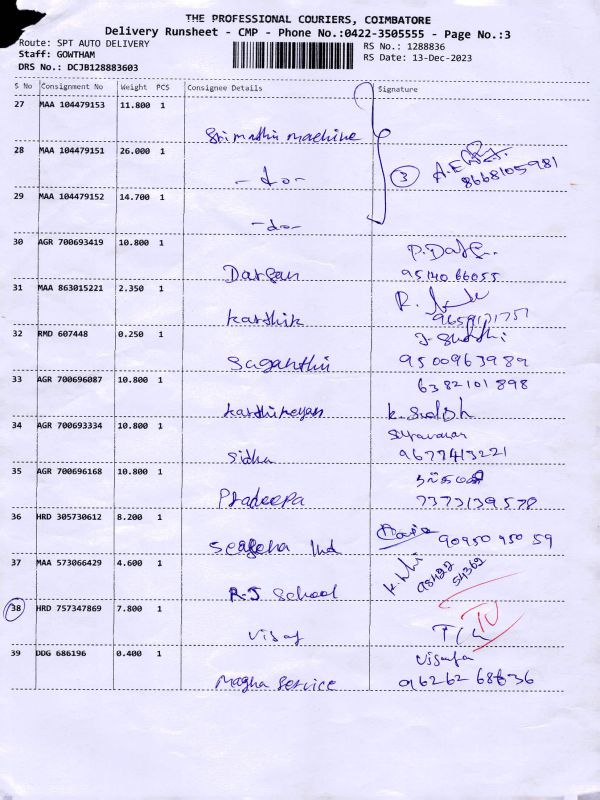 THE PROFESSIONAL COURIERS, COIMBATORE
Delivery Runsheet - CMP - Phone No.:0422-3505555 - Page No.:3
Route: SPT AUTO DELIVERY
RS No.: 1288836
Staff: GOWTHAM
RS Date: 13-Dec-2023
DRS No.: DCJB128883603
S No Consignment No Weight PCS Consignee Details Signature
27 MAA 104479153 11.800 1
Srimathi machine
28 MAA 104479151 26.000 1
- do - 3 8668105981
29 MAA 104479152 14.700 1
- do -
30 AGR 700693419 10.800 1
Darsan 95140 66055
31 MAA 863015221 2.350 1
karthik
32 RMD 607448 0.250 1
Suganthi 9500963989
33 AGR 700696087 10.800 1 6382101898
karthikeyan
34 AGR 700693334 10.800 1
Sidha 9677413221
35 AGR 700696168 10.800 1
Pradeepa 7373139578
36 HRD 305730612 8.200 1
90950 950 59
37 MAA 573066429 4.600 1
R.J School
38 HRD 757347869 7.800 1
39 DDG 686196 0.400 1
Magha Service 96262 68636